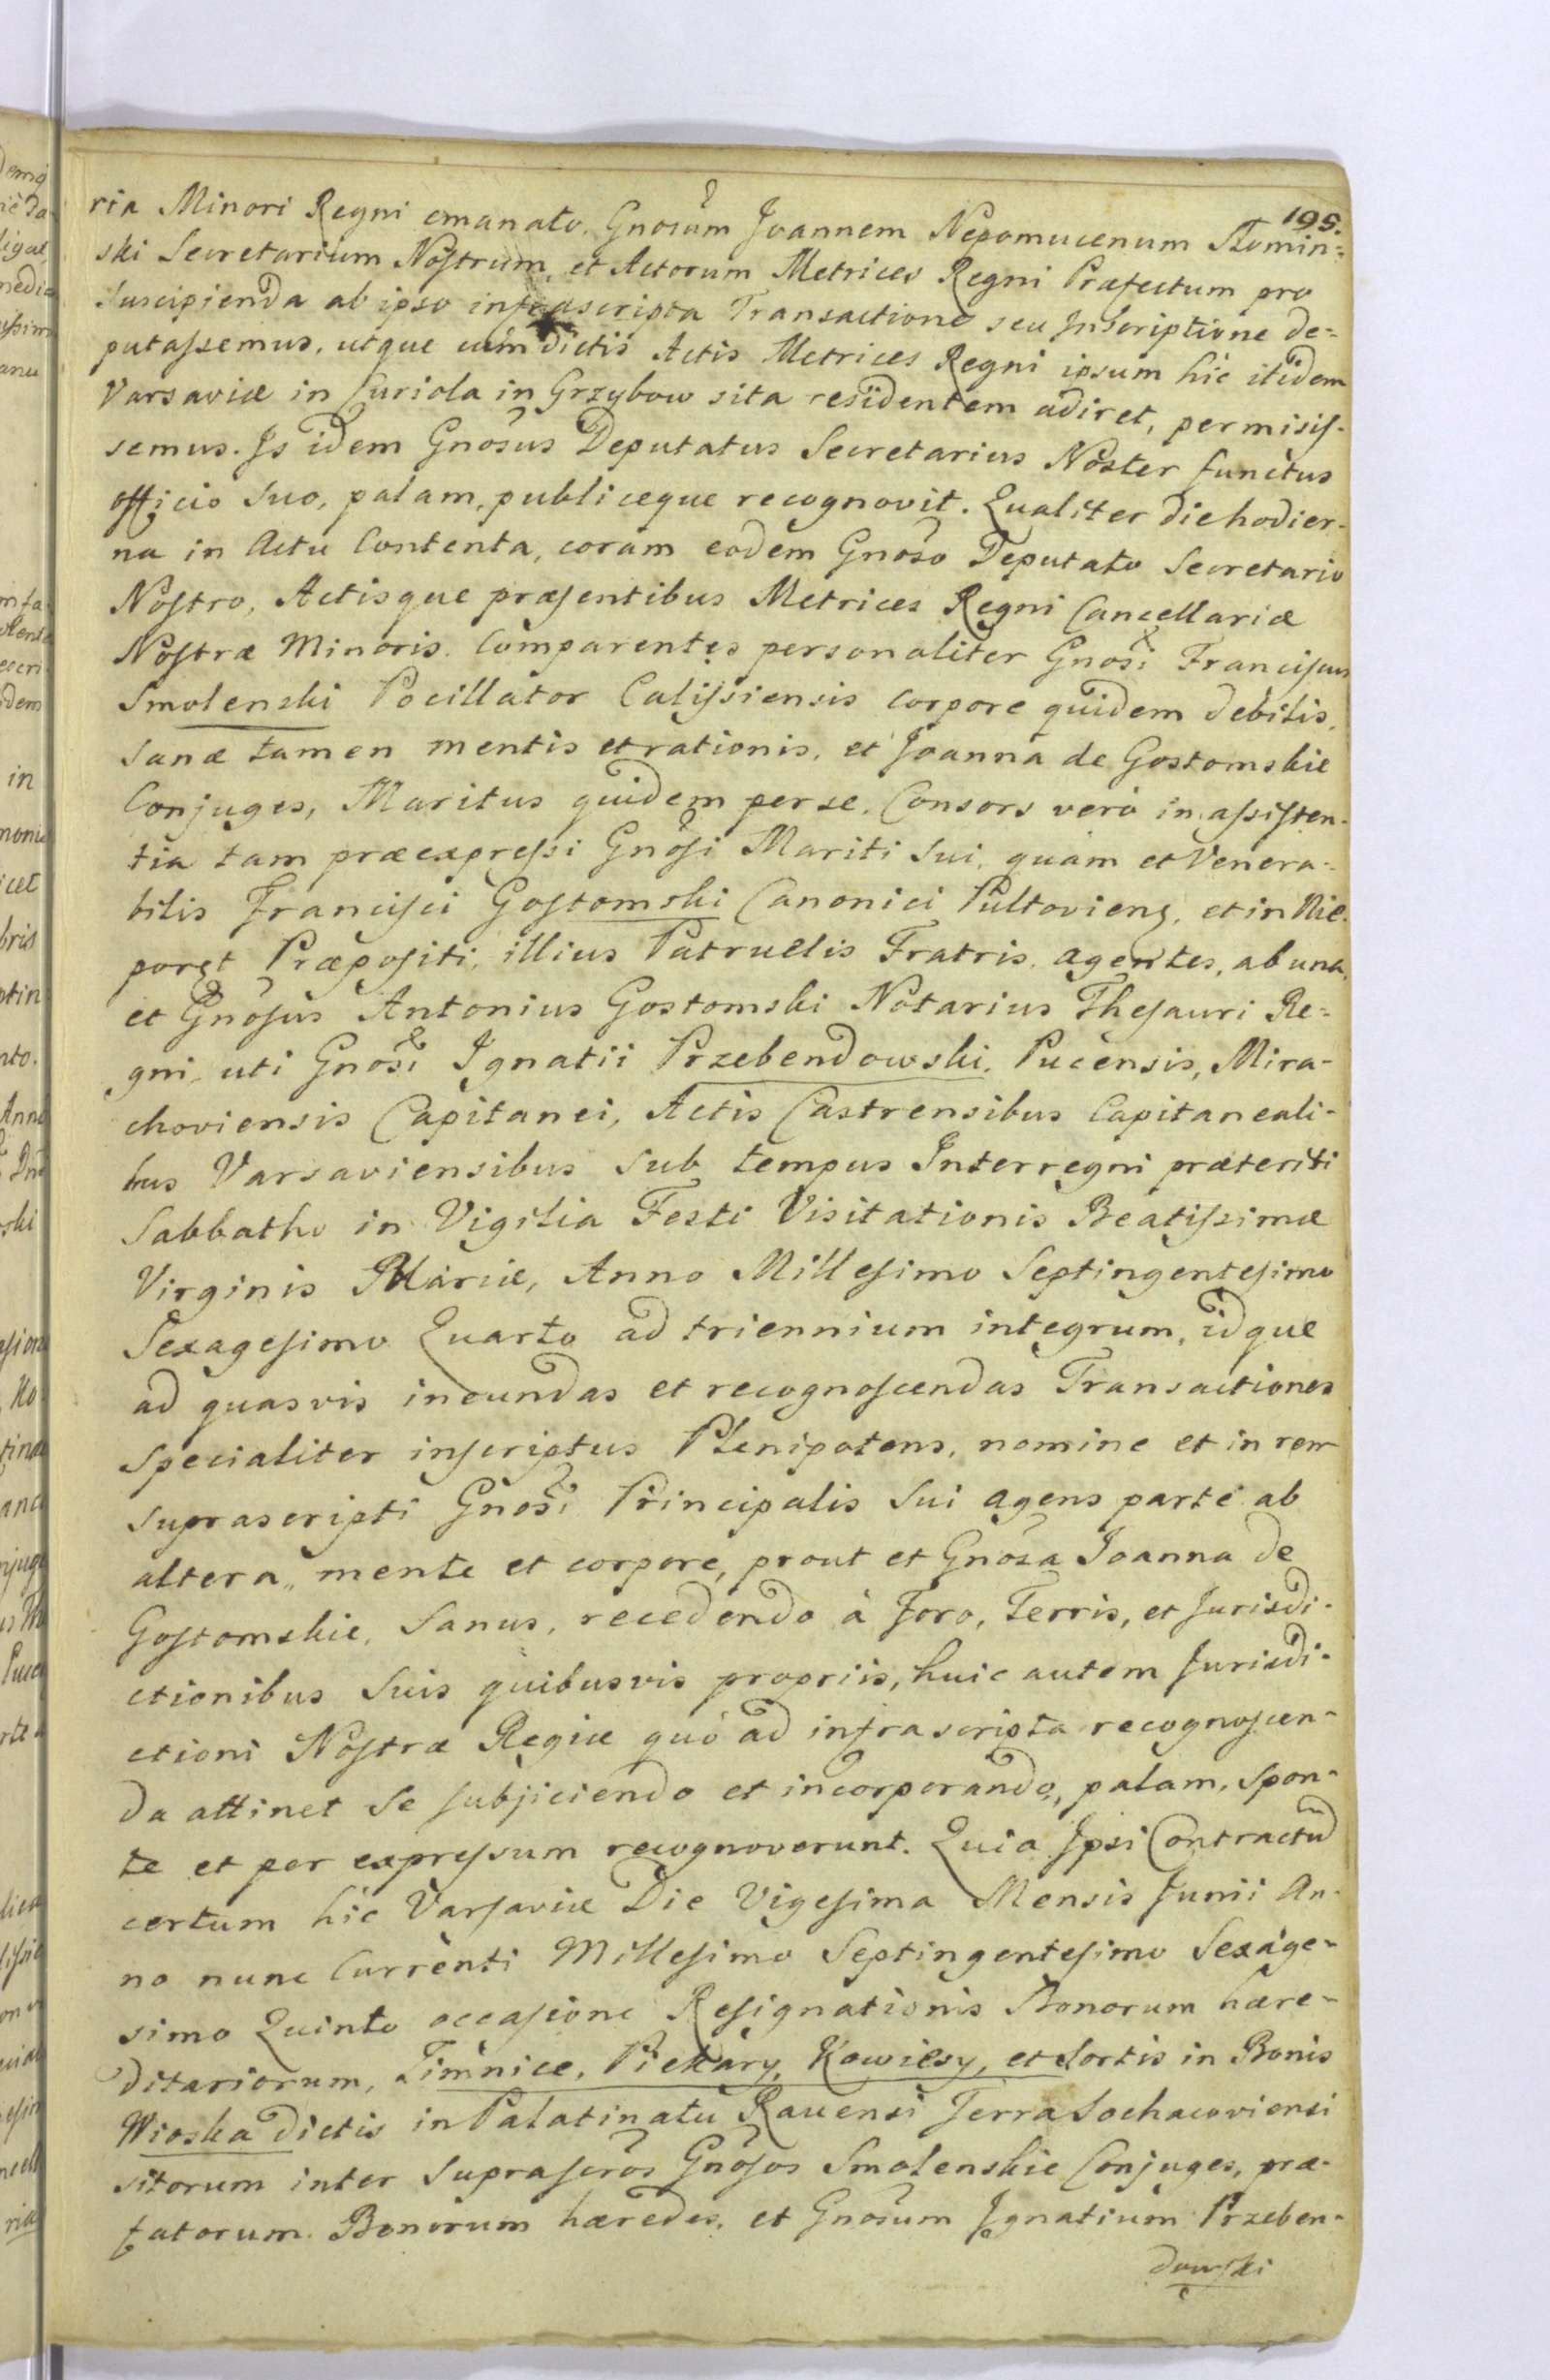 195.
ria Minori Regni emanato. Gnosum Joannem Nepomucenum Stomin=
ski Secretarium Nostrum, et Actorum Metrices Regni Præfectum pro
suscipienda ab ipso infrascripta Transactione seu Inscriptione de=
putassemus, utque cum dictis Actis Metrices Regni ipsum hic itidem
Varsaviæ in Curiola in Grzybow sita residentem adiret, permisis-
semus. Is idem Gnosus Deputatus Secretarius Noster functus
officio suo, palam, publiceque recognovit. Qualiter die hodier-
na in Actu Contenta, coram eodem Gnoso Deputato Secretario
Nostro, Actisque præsentibus Metrices Regni Cancellariæ
Nostræ Minoris. Comparentes personaliter Gnosi Franciscus
Smolenski Pocillator Calissiensis corpore quidem debilis,
sanæ tamen mentis et rationis, et Joanna de Gostomskie
Conjuges, Maritus quidem per se, Consors verò in assisten-
tia tam præexpressi Gnosi Mariti sui, quàm et Venera-
bilis Francisci Gostomski Canonici Pultoviens, et in Nie-
poręt Præpositi, illius Patruelis Fratris, agentes, ab una,
et Gnosus Antonius Gostomski Notarius Thesauri Re=
gni, uti Gnosi Ignatii Przebendowski, Pucensis, Mira-
choviensis Capitanei, Actis Castrensibus Capitaneali-
bus Varsaviensibus sub tempus Interregni præteriti
Sabbatho in Vigilia Festi Visitationis Beatissimæ
Virginis Mariæ, Anno Millesimo Septingentesimo
Sexagesimo Quarto ad triennium integrum, idque
ad quasvis ineundas et recognoscendas Transactiones
specialiter inscriptus Plenipotens, nomine et in rem
suprascripti Gnosi Principalis sui agens parte ab
altera, mente et corpore, prout et Gnosa Joanna de
Gostomskie, sanus, recedendo à Foro, Terris, et Jurisdi-
ctionibus suis quibusvis propriis, huic autem Jurisdi-
ctioni Nostræ Regiæ quò ad infrascripta recognoscen-
da attinet se subjiciendo et incorporando, palam, spon-
te et per expressum recognoverunt. Quia Ipsi Contractũ
certum hic Varsaviæ Die Vigesima Mensis Junii An-
no nunc Currenti Millesimo Septingentesimo Sexage-
simo Quinto occasione Resignationis Bonorum hære-
ditariorum, Timnice, Piekary, Kowiesy, et Sortis in Bonis
Wioska dictis in Palatinatu Ravensi Terra Sochacoviensi
sitorum inter suprascros Gnosos Smolenskie Conjuges, præ-
fatorum Bonorum hæredes, et Gnosum Ignatium Przeben-
dowski